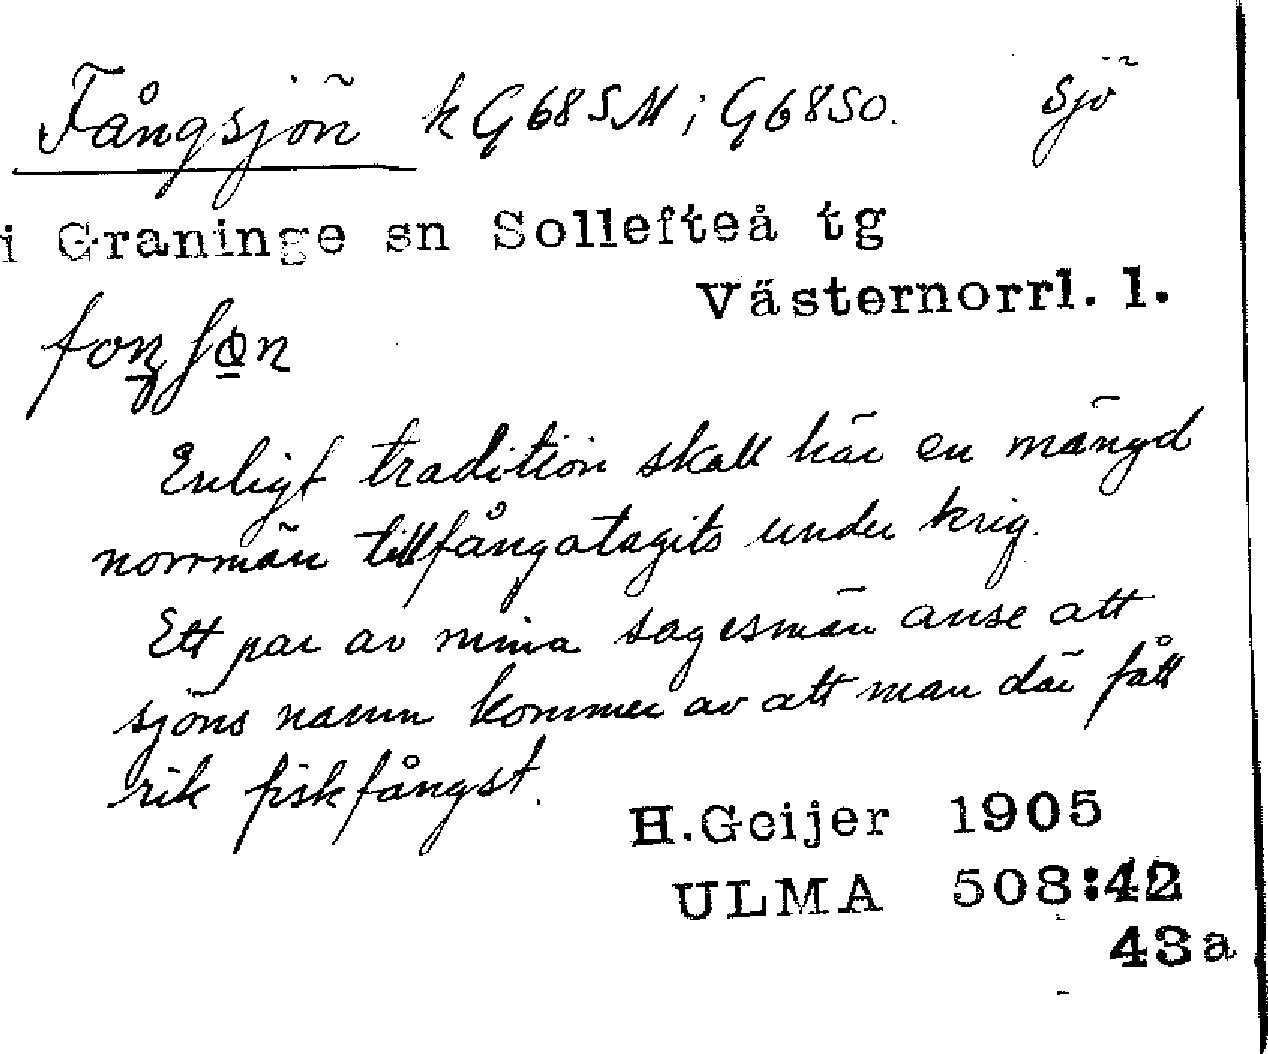 Fångsjön k G 68 SM; G 68 SO. Sjö
i Graninge sn Sollefteå tg
Västernorrl. l.
Enligt tradition skall här en mängd
norrmän tillfångatagits under krig.
Ett par av mina sagesmän anse att
sjöns namn kommer av att man där fått
rik fiskfångst.
H.Geijer 1905
ULMA 508:42
43a